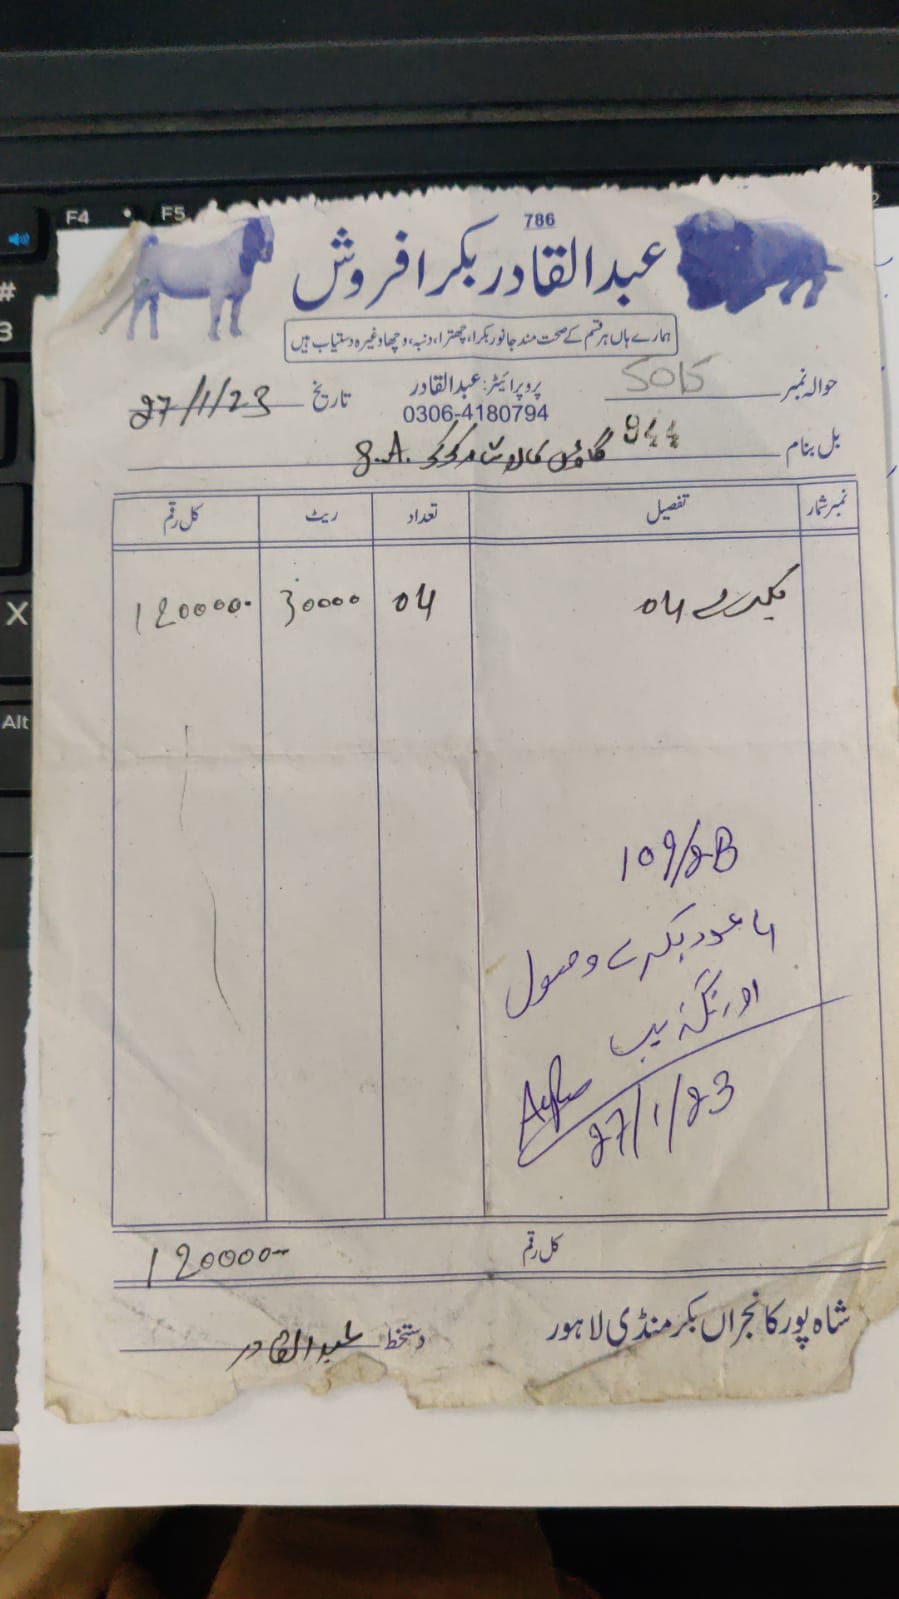 786
عبدالقادر بکرا فروش
ہمارے ہاں ہر قسم کے صحت مند جانور بکرا، چھترا، دنبہ، وچھا وغیرہ دستیاب ہیں
حوالہ نمبر 5015
پروپرائیٹر: عبدالقادر
0306-4180794
تاریخ 27/1/23
بل بنام 944
نمبر شمار تفصیل تعداد ریٹ کل رقم
بکرے 04 04 30000 120000-
109/2-B
عدد بکرے وصول
اورنگزیب
27/1/23
کل رقم 120000-
شاہ پور کانجراں بکر منڈی لاہور
دستخط عبدالقادر
F4
F5
#
3
X
Alt